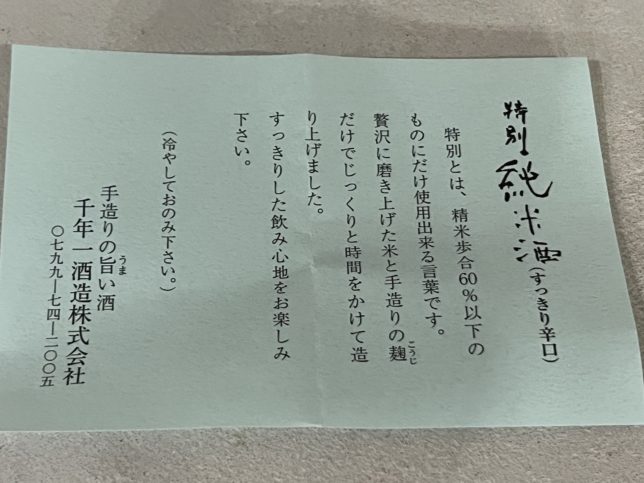 特別純米酒(すっきり辛口)
特別とは、精米歩合60%以下の
ものにだけ使用出来る言葉です。
贅沢に磨き上げた米と手造りの麹こうじ
だけでじっくりと時間をかけて造
り上げました。
すっきりした飲み心地をお楽しみ
下さい。
(冷やしておのみ下さい。)
手造りの旨うまい酒
千年一酒造株式会社
〇七九九―七四―二〇〇五